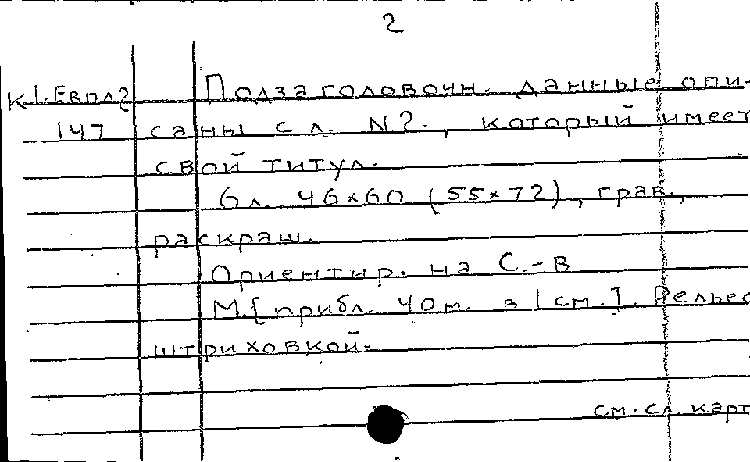 2
К 1. Евпл2 Подзаголовочн. данные опи-
147 саны с л. №2., который имеет
свой титул.
6 л. 46×60 (55×72), грав.,
раскраш.
Ориентир. на С.-В
М. [прибл. 40 м. в 1 см.]. Рельеф
штриховкой.
см. сл. карт